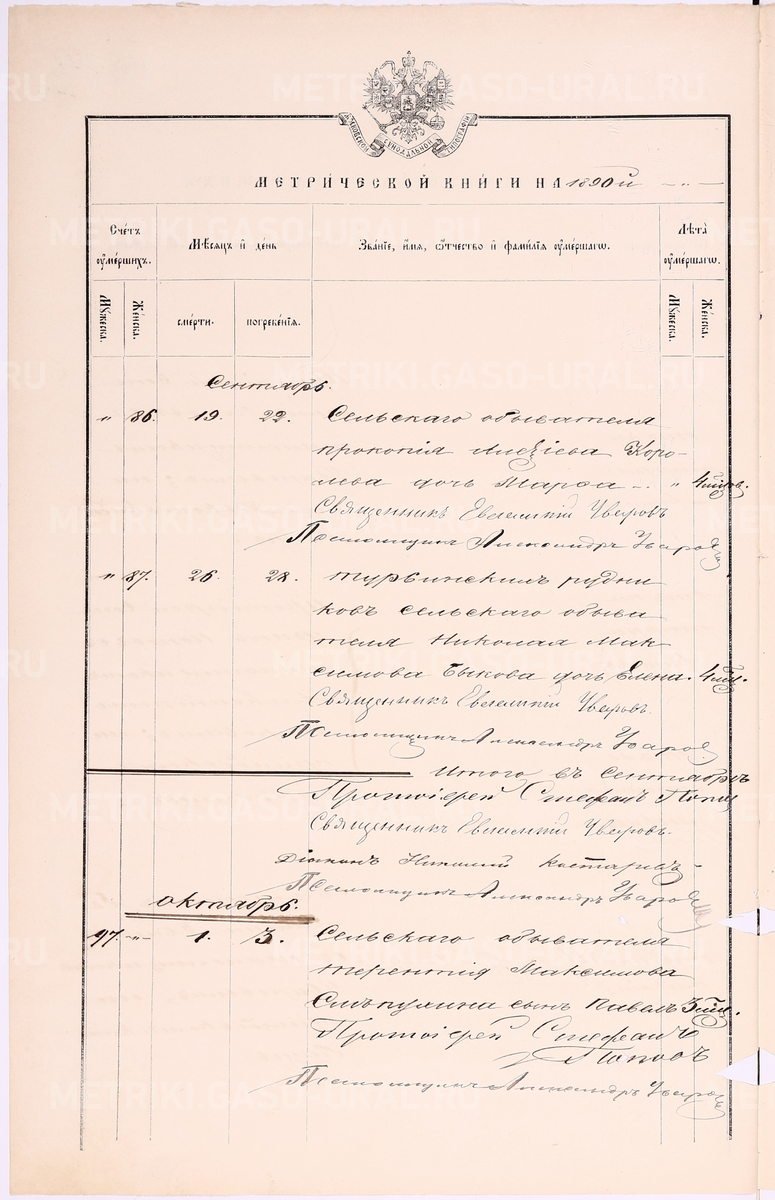 МЕТРИ́ЧЕСКОЙ КНИ́ГИ НА 1890й
Сче́тъ оу҆ме́ршихъ.
Мѣ́сяцъ и҆ де́нь
Зва́нїе, и҆́мя, ѻ҆́тчество и҆ фами́лїя оу҆ме́ршагѡ.
Лѣ́та оу҆ме́ршагѡ.
Мꙋ́жеска.
Же́нска.
сме́рти.
погребе́нїя.
Мꙋ́жеска.
Же́нска.
Сентябрь.
" 86. 19. 22. Сельскаго обывателя
Прокопія Алексіева Коро-
лева дочь Марѳа - " 4
Священникъ Евлампій Уваровъ
Псаломщикъ Александръ Уваровъ
" 87. 26. 28. Турьинскихъ рудни
ковъ сельскаго обыва
теля Николая Мак
симова Быкова дочь Елена. 4
Священникъ Евлампій Уваровъ.
Псаломщикъ Александръ Уваровъ
Итого въ Сентябрѣ
Протоіерей Стефанъ Попов
Священникъ Евлампій Уваровъ.
Діаконъ
Псаломщикъ Александръ Уваровъ
Октябрь.
97. -"- 1. 3. Сельскаго обывателя
Терентія Максимова
сынъ Павелъ 3
Протоіерей Стефанъ
Поповъ
Псаломщикъ Александръ Уваровъ
METRIKI.GASO-URAL.RU